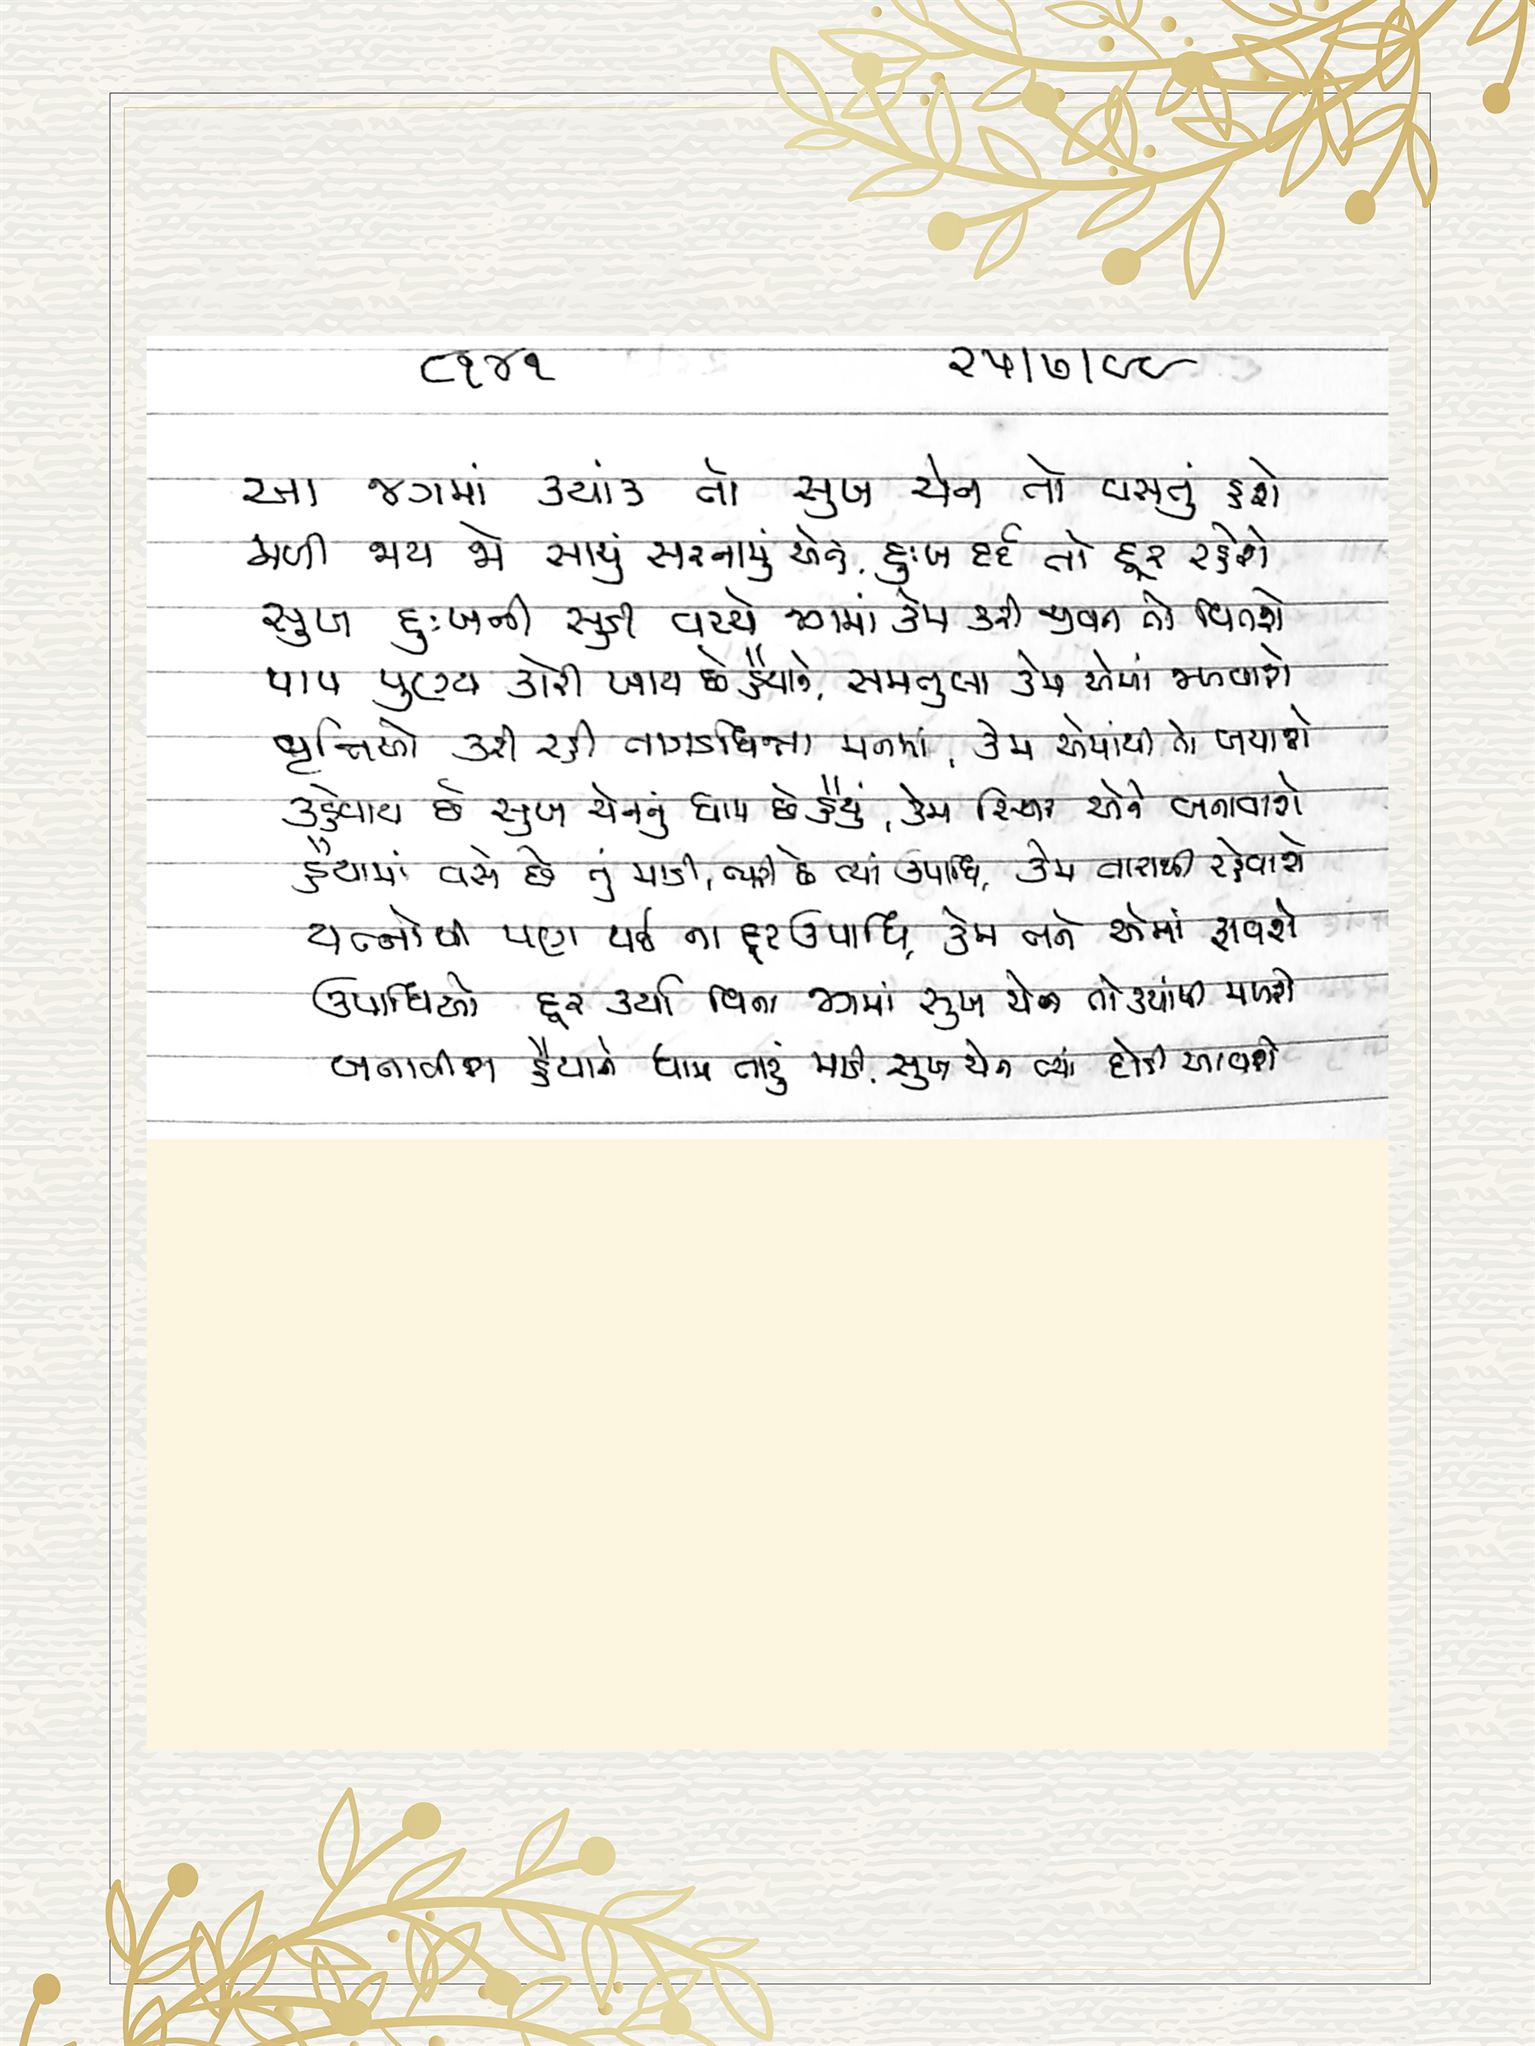 ૮૧૪૧ ૨૫/૭/૯૯
આ જગમાં ક્યાંક તો સુખ ચેન તો વસતું હશે
મળી જાય જો સાચું સરનામું એનું, દુઃખ દર્દ તો દૂર રહેશે
સુખ દુઃખની સૂડી વચ્ચે જગમાં કેમ કરી જીવન તો વિતશે
પાપ પુણ્ય કોરી ખાય છે હૈયાને, સમતુલા કેમ એમાં જળવાશે
વૃત્તિઓ કરી રહી તાગડધિન્ના મનમાં, કેમ એમાંથી તો બચાશે
કહેવાય છે સુખ ચેનનું ધામ છે હૈયું, કેમ સ્થિર એને બનાવાશે
હૈયામાં વસે છે તું માડી, જાગી છે ત્યાં ઉપાધિ, કેમ તારાથી રહેવાશે
યત્નોથી પણ થઈ ના દૂર ઉપાધિ, કેમ તને એમાં ફાવશે
ઉપાધિઓ દૂર કર્યા વિના જગમાં સુખ ચેન તો ક્યાંથી મળશે
બનાવીશ હૈયાને ધામ તારું માડી, સુખ ચેન ત્યાં દોડી આવશે